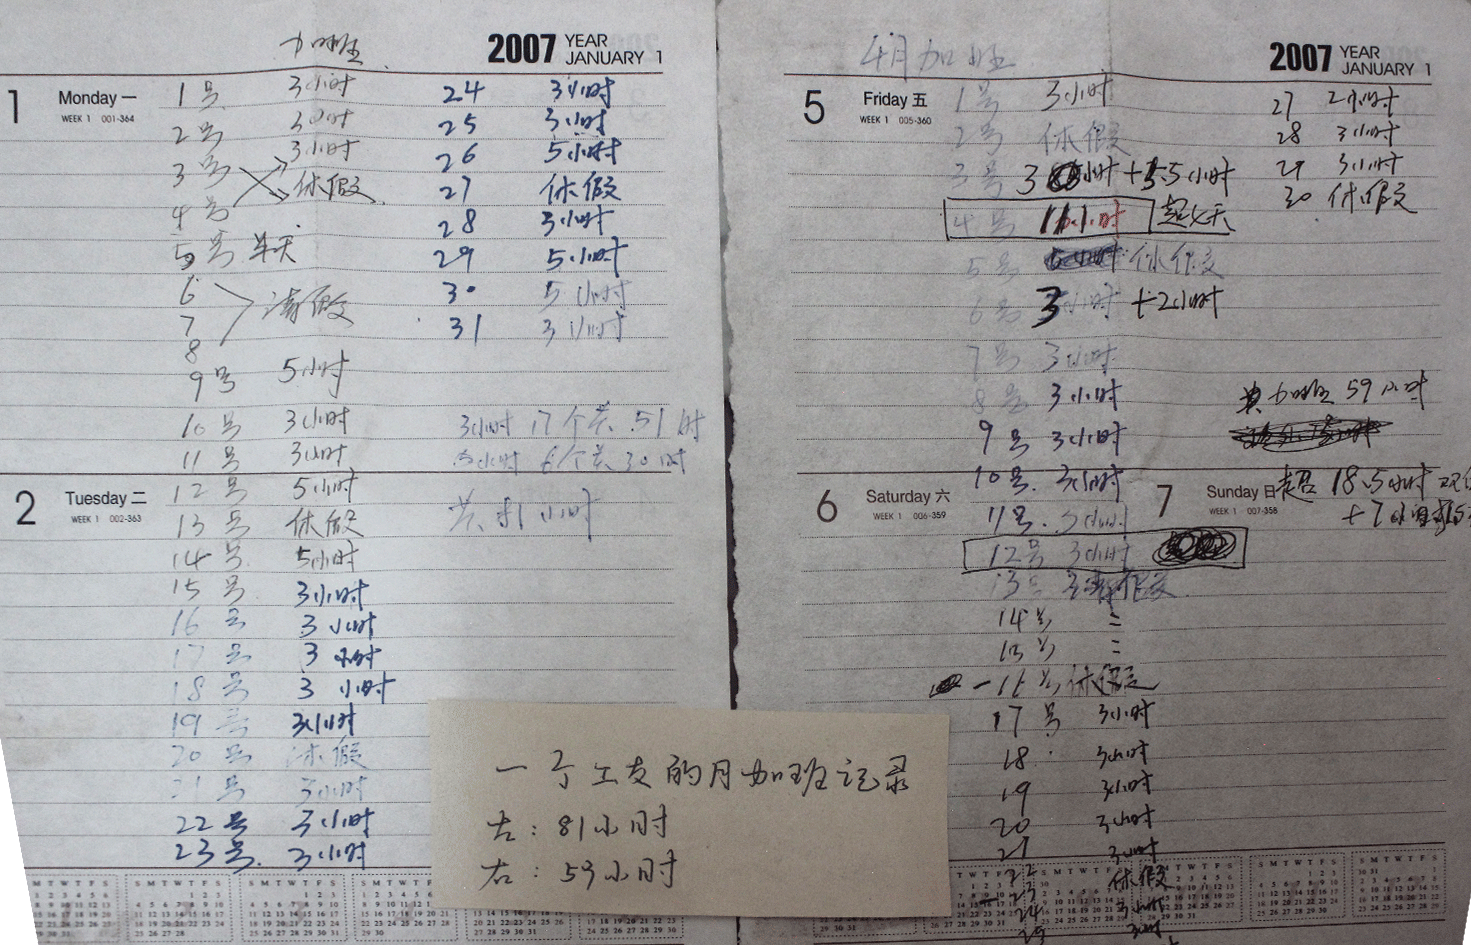 加班
2007 YEAR JANUARY 1
1 Monday 一
WEEK 1 001-364
1号 3小时
2号 3小时
3号 3小时
4号 休假
5号 半天
6
7 请假
8
9号 5小时
10号 3小时
11号 3小时
2 Tuesday 二
WEEK 1 002-363
12号 5小时
13号 休假
14号 5小时
15号 3小时
16号 3小时
17号 3小时
18号 3小时
19号 3小时
20号 休假
21号 3小时
22号 3小时
23号 3小时
24 3小时
25 3小时
26 5小时
27 休假
28 3小时
29 5小时
30 5小时
31 3小时
3小时 17个共 51时
5小时 6个共 30时
共 81小时
4月加班
2007 YEAR JANUARY 1
5 Friday 五
WEEK 1 005-360
1号 3小时
2号 休假
3号 3小时+5.5小时
4号 11小时
5号 休假
6号 3小时 +2小时
7号 3小时
8号 3小时
9号 3小时
10号 3小时
11号 3小时
6 Saturday 六
WEEK 1 006-359
7 Sunday 日
WEEK 1 007-358
12号 3小时
13号 休假
14号 =
15号 =
16号 休假
17号 3小时
18 3小时
19 3小时
20 3小时
21 3小时
22 休假
23 3小时
24 3小时
25
27 2小时
28 3小时
29 3小时
30 休假
共加班 59小时
超 18.5小时
一个工友的月加班记录
左：81小时
右：59小时